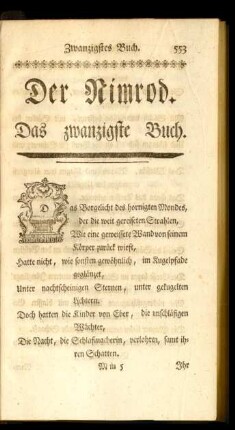 Zwanzigstes Buch. 553
Der Nimrod.
Das zwanzigste Buch.
Das Borgelicht des hornigten Mondes,
der die weit gereiseten Strahlen,
Wie eine geweissete Wand von seinem
Körper zurück wirft,
Hatte nicht, wie sonsten gewöhnlich, im Kugelpfade
geglänzet,
Unter nachtscheinigen Sternen, unter gekugelten
Lichtern.
Doch hatten die Kinder von Eber, die unschläfigen
Wächter,
Die Nacht, die Schlafsaugerin, verlohren, samt ih-
ren Schatten.
M m 5 Ihr